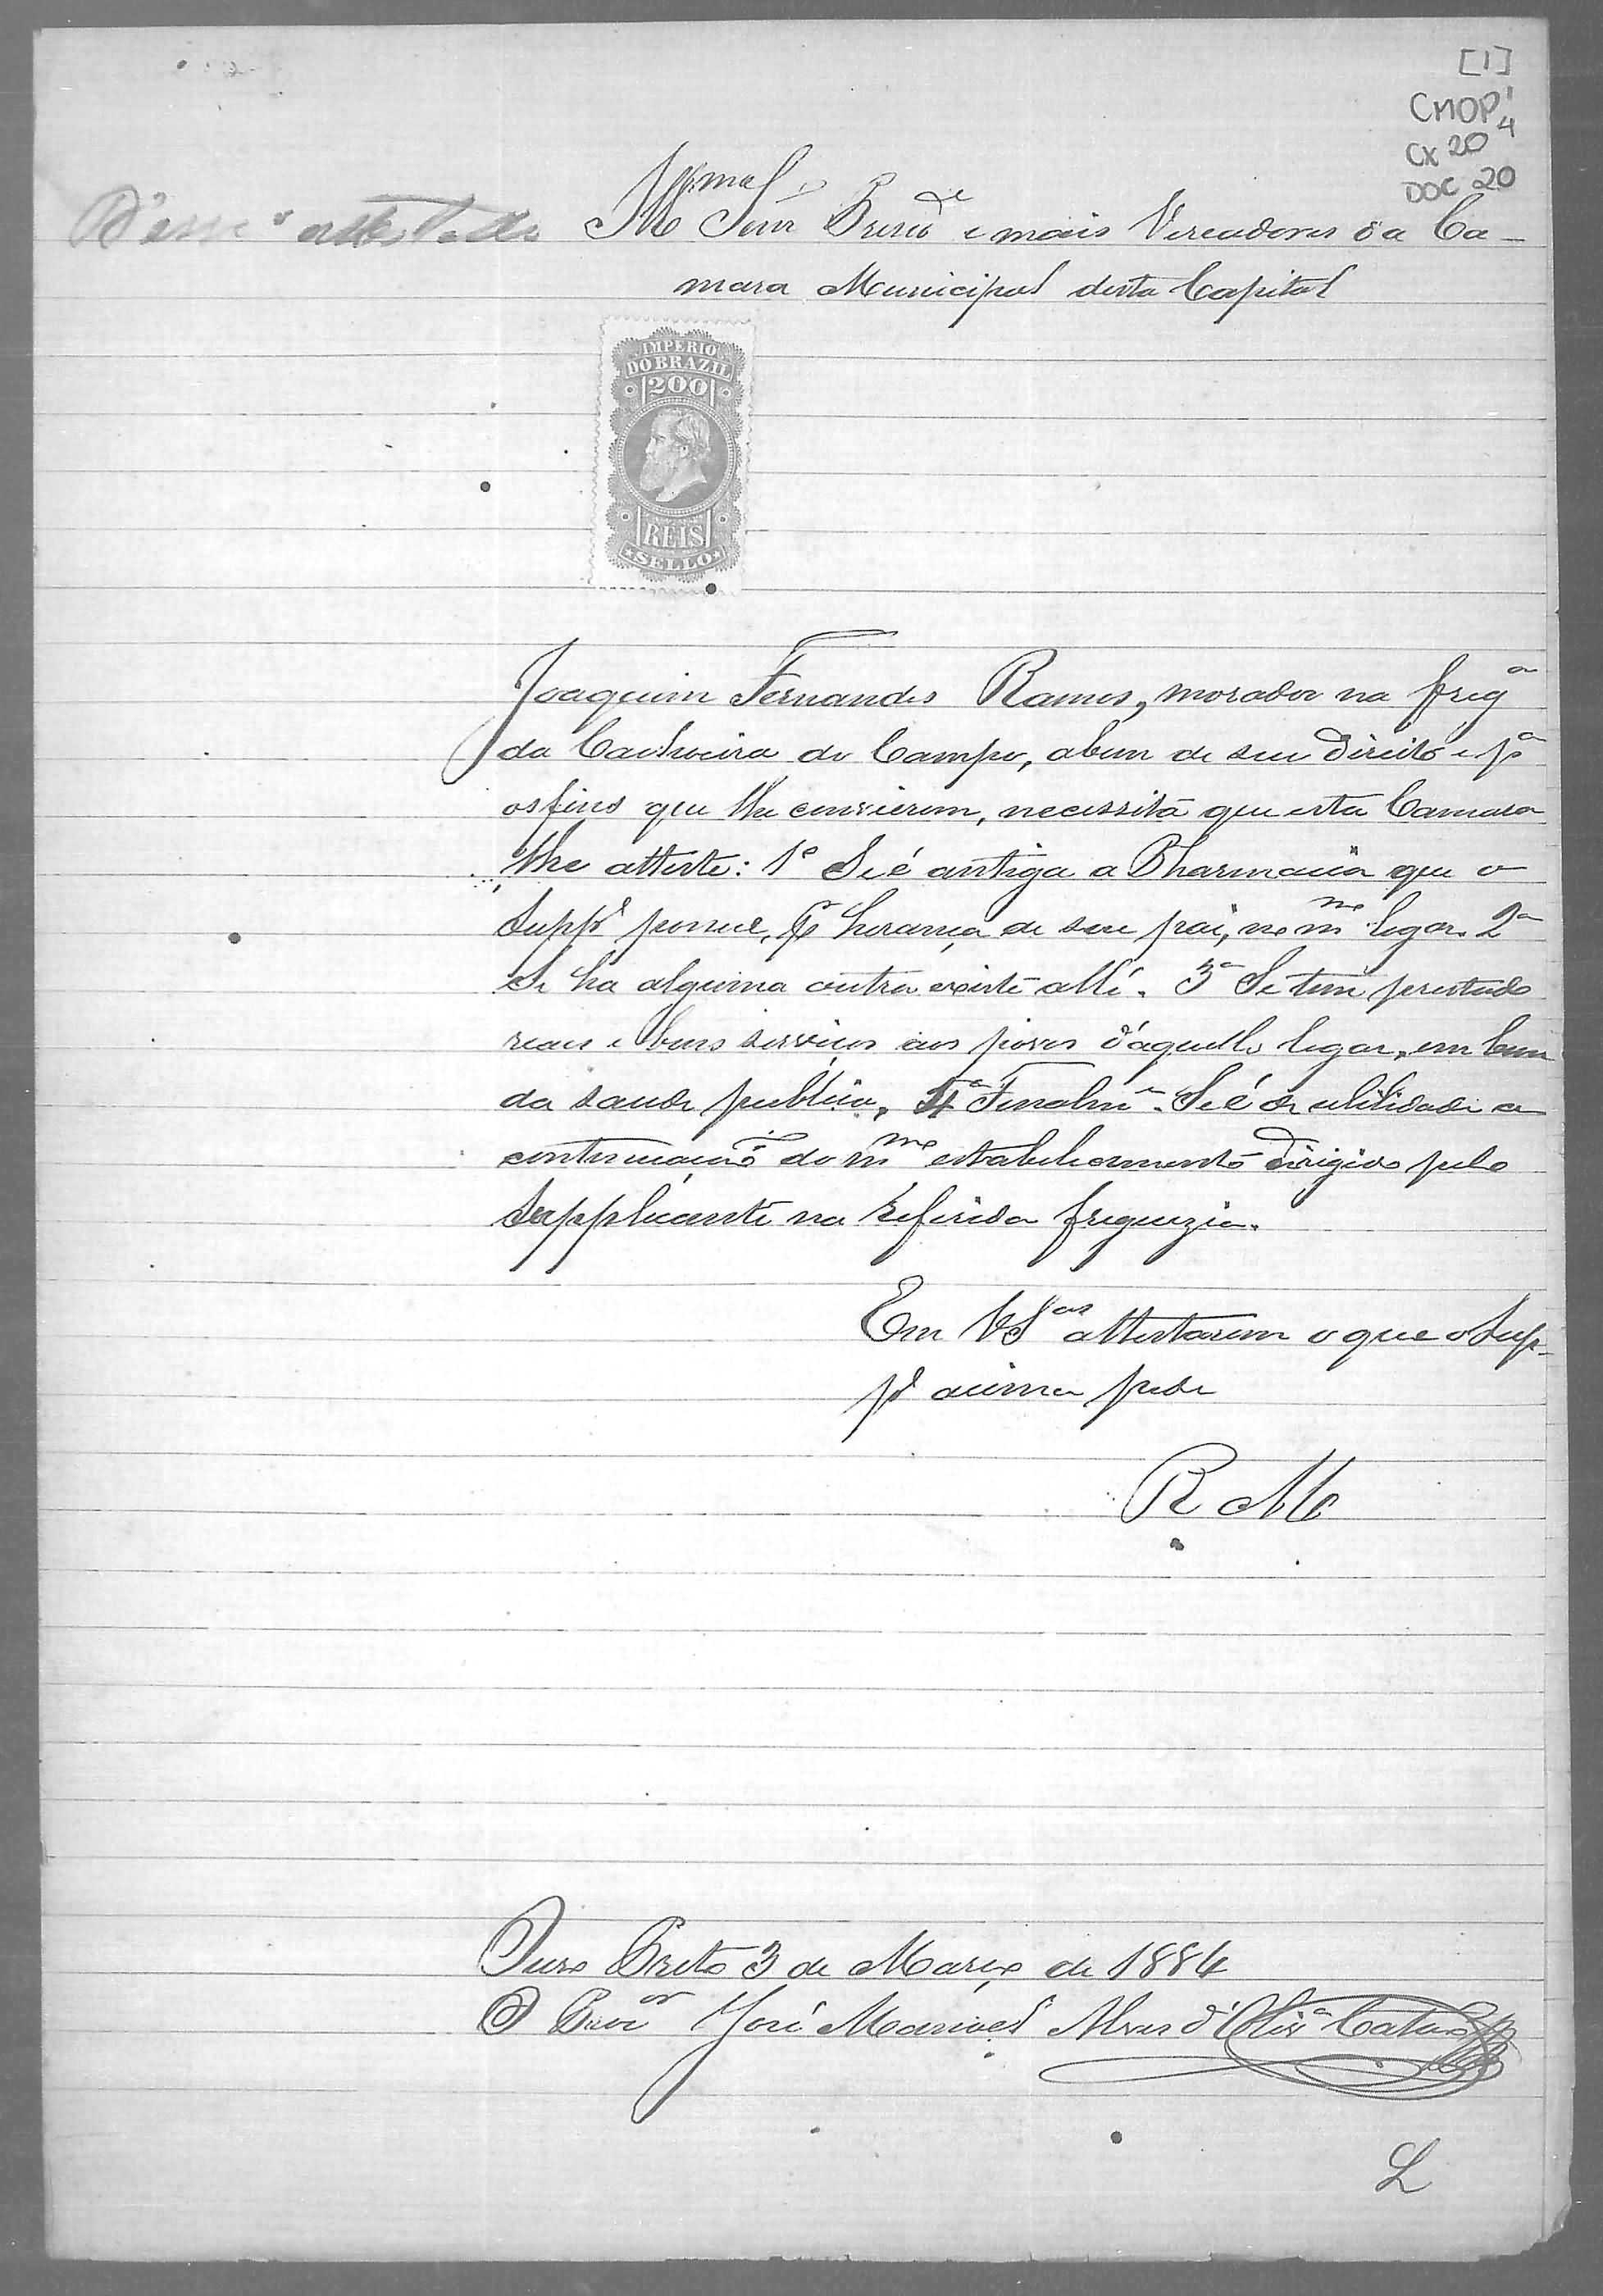 [1]
CMOP 1/4
CX 20
DOC 20
Illmos Snrs Preside e mais Vereadores da Ca-
mara Municipal desta Capital
IMPERIO
DO BRAZIL
200
REIS
SELLO
Joaquim Fernandes Ramos, morador na frega
da Cachoeira do Campo, abem de seu direito e pa
os fins que lhe convierem, necessita que esta Camara
lhe atteste: 1º Se é antiga a Pharmacia que o
Suppe possue, pr herança de seu pai, no mmo logar. 2ª
Se ha alguma outra existe alli. 3ª Se tem prestado
reaes e bons serviços aos povos d'aquelle logar, em bem
da saude publica. 4ª Finalme. Se é de utilidade a
continuação do mmo estabelecimento dirigido pelo
Supplicante na referida freguezia.
Em VSas attestarem o que o Sup-
pe acima pede
R Mce
Ouro Preto 3 de Março de 1884
O Procor José Manoel Alves d'Olivra Catão